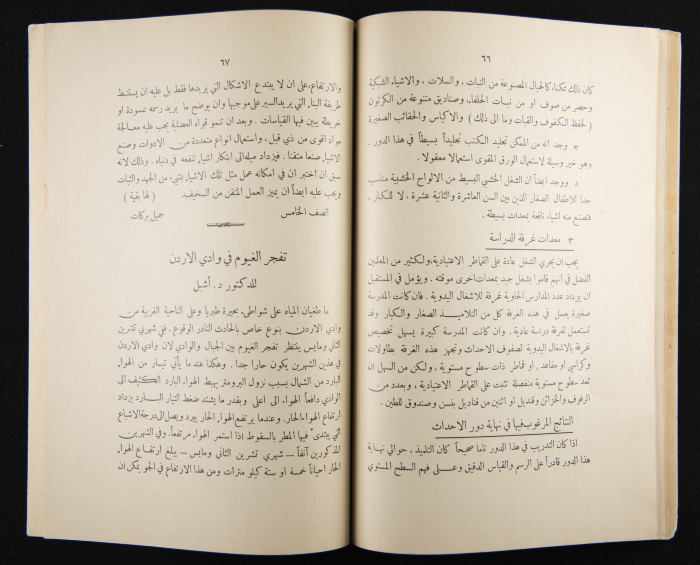 ٦٦
كان ذلك تمكنا، كالحبال المصنوعة من النبات ، والسلات ، والاشياء الشكية
وحصر من صوف او من نبات الحلفاء، وصناديق متنوعة من الكرتون
( لحفظ الكفوف والقبات وما الى ذلك ) والاكياس والحقائب الصغيرة
ج وجد انه من الممكن تجليد الكتب تجليداً بسيطاً في هذا الدور .
وهو خير وسيلة لاستعمال الورق المقوى استعمالا معقولا .
د ووجد ايضاً ان الشغل الخشبي البسيط من الالواح الخشبية مناسب
جدا للاطفال الصغار الذين بين السن العاشرة والثانية عشرة ، لا للكبار ،
فتصنع منه اشياء نافعة بمعدات بسيطة .
٣ معدات غرفة الدراسة
يجب ان يجري الشغل عادة على القماطر الاعتيادية،ولكثير من المعلمين
الفضل في انهم قاموا بشغل جيد بمعدات اخرى موقتة . ويؤمل في المستقبل
ان يزداد عدد المدارس الحاوية غرفة للاشغال اليدوية . فان كانت المدرسة
صغيرة يعمل في هذه الغرفة كل من التلاميذ الصغار والكبار وقد
تستعمل لغرفة دراسة عادية . وان كانت المدرسة كبيرة يسهل تخصيص
غرفة بالاشغال اليدوية لصفوف الاحداث وتجهز هذه الغرفة بطاولات
وكراسي او مقاعد، او قماطر ذات سطوح مستوية ، ولكن من السهل ان
تعد سطوح مستوية منفصلة تثبت على القماطر الاعتيادية ، وبعدد من
الرفوف والخزائن وقنديل او اثنين من قناديل بنسن وصندوق للطين .
النتائج المرغوب فيها في نهاية دور الاحداث
اذا كان التدريب في هذا الدور تاما صحيحاً كان التلميذ ، حوالي نهاية
هذا الدور قادراً على الرسم والقياس الدقيق وعلى فهم السطح المستوي
٦٧
والارتفاع،على ان لا يبتدع الاشكال التي يريدها فقط بل عليه ان يستنبط
طريقة البناء التي يريد السير على موجبها وان يوضح ما يريد رسمه بمسودة او
خريطة يبين فيها القياسات . وبعد ان تنمو قواه العضلية يجب عليه معالجة
مواد اقوى من ذي قبل ، واستعمال انواع متعددة من الادوات وصنع
الاشياء صنعاً متقنا . فيزداد ميله الى ابتكار اشياء تنفعه في دنياه . وذلك لانه
سبق ان اختبر ان في امكانه عمل مثل تلك الاشياء بشيء من الجد والثبات
ويجب عليه ايضاً ان يميز العمل المتقن من السخيف. ( لها بقية )
الصف الخامس جميل بركات
تفجر الغيوم في وادي الاردن
للدكتور د. أشبل
ما طغيان المياه على شواطيء بحيرة طبريا وعلى الناحية الغربية من
وادي الاردن بنوع خاص بالحادث النادر الوقوع . ففي شهري تشرين
الثاني ومايس ينتظر تفجر الغيوم بين الجبال والوادي لان وادي الاردن
في هذين الشهرين يكون حارا جدا . وهكذا عند ما يأتي تيار من الهواء
البارد من الشمال بسبب نزول البرومتر يهبط الهواء البارد الكثيف الى
الوادي دافعاً الهواء الى اعلى وبقدر ما يشتد ضغط التيار البارد يزداد
ارتفاع الهواء الحار . وعندما يرتفع الهواء الحار يبرد ويصل الى درجة الاشباع
التي يبتدىء فيها المطر بالسقوط اذا استمر الهواء مرتفعاً . وفي الشهرين
المذكورين آنفاً — شهري تشرين الثاني ومايس — يبلغ ارتفاع الهواء
الحار احياناً خمسة او ستة كيلو مترات ومن هذا الارتفاع في الجو يمكن ان